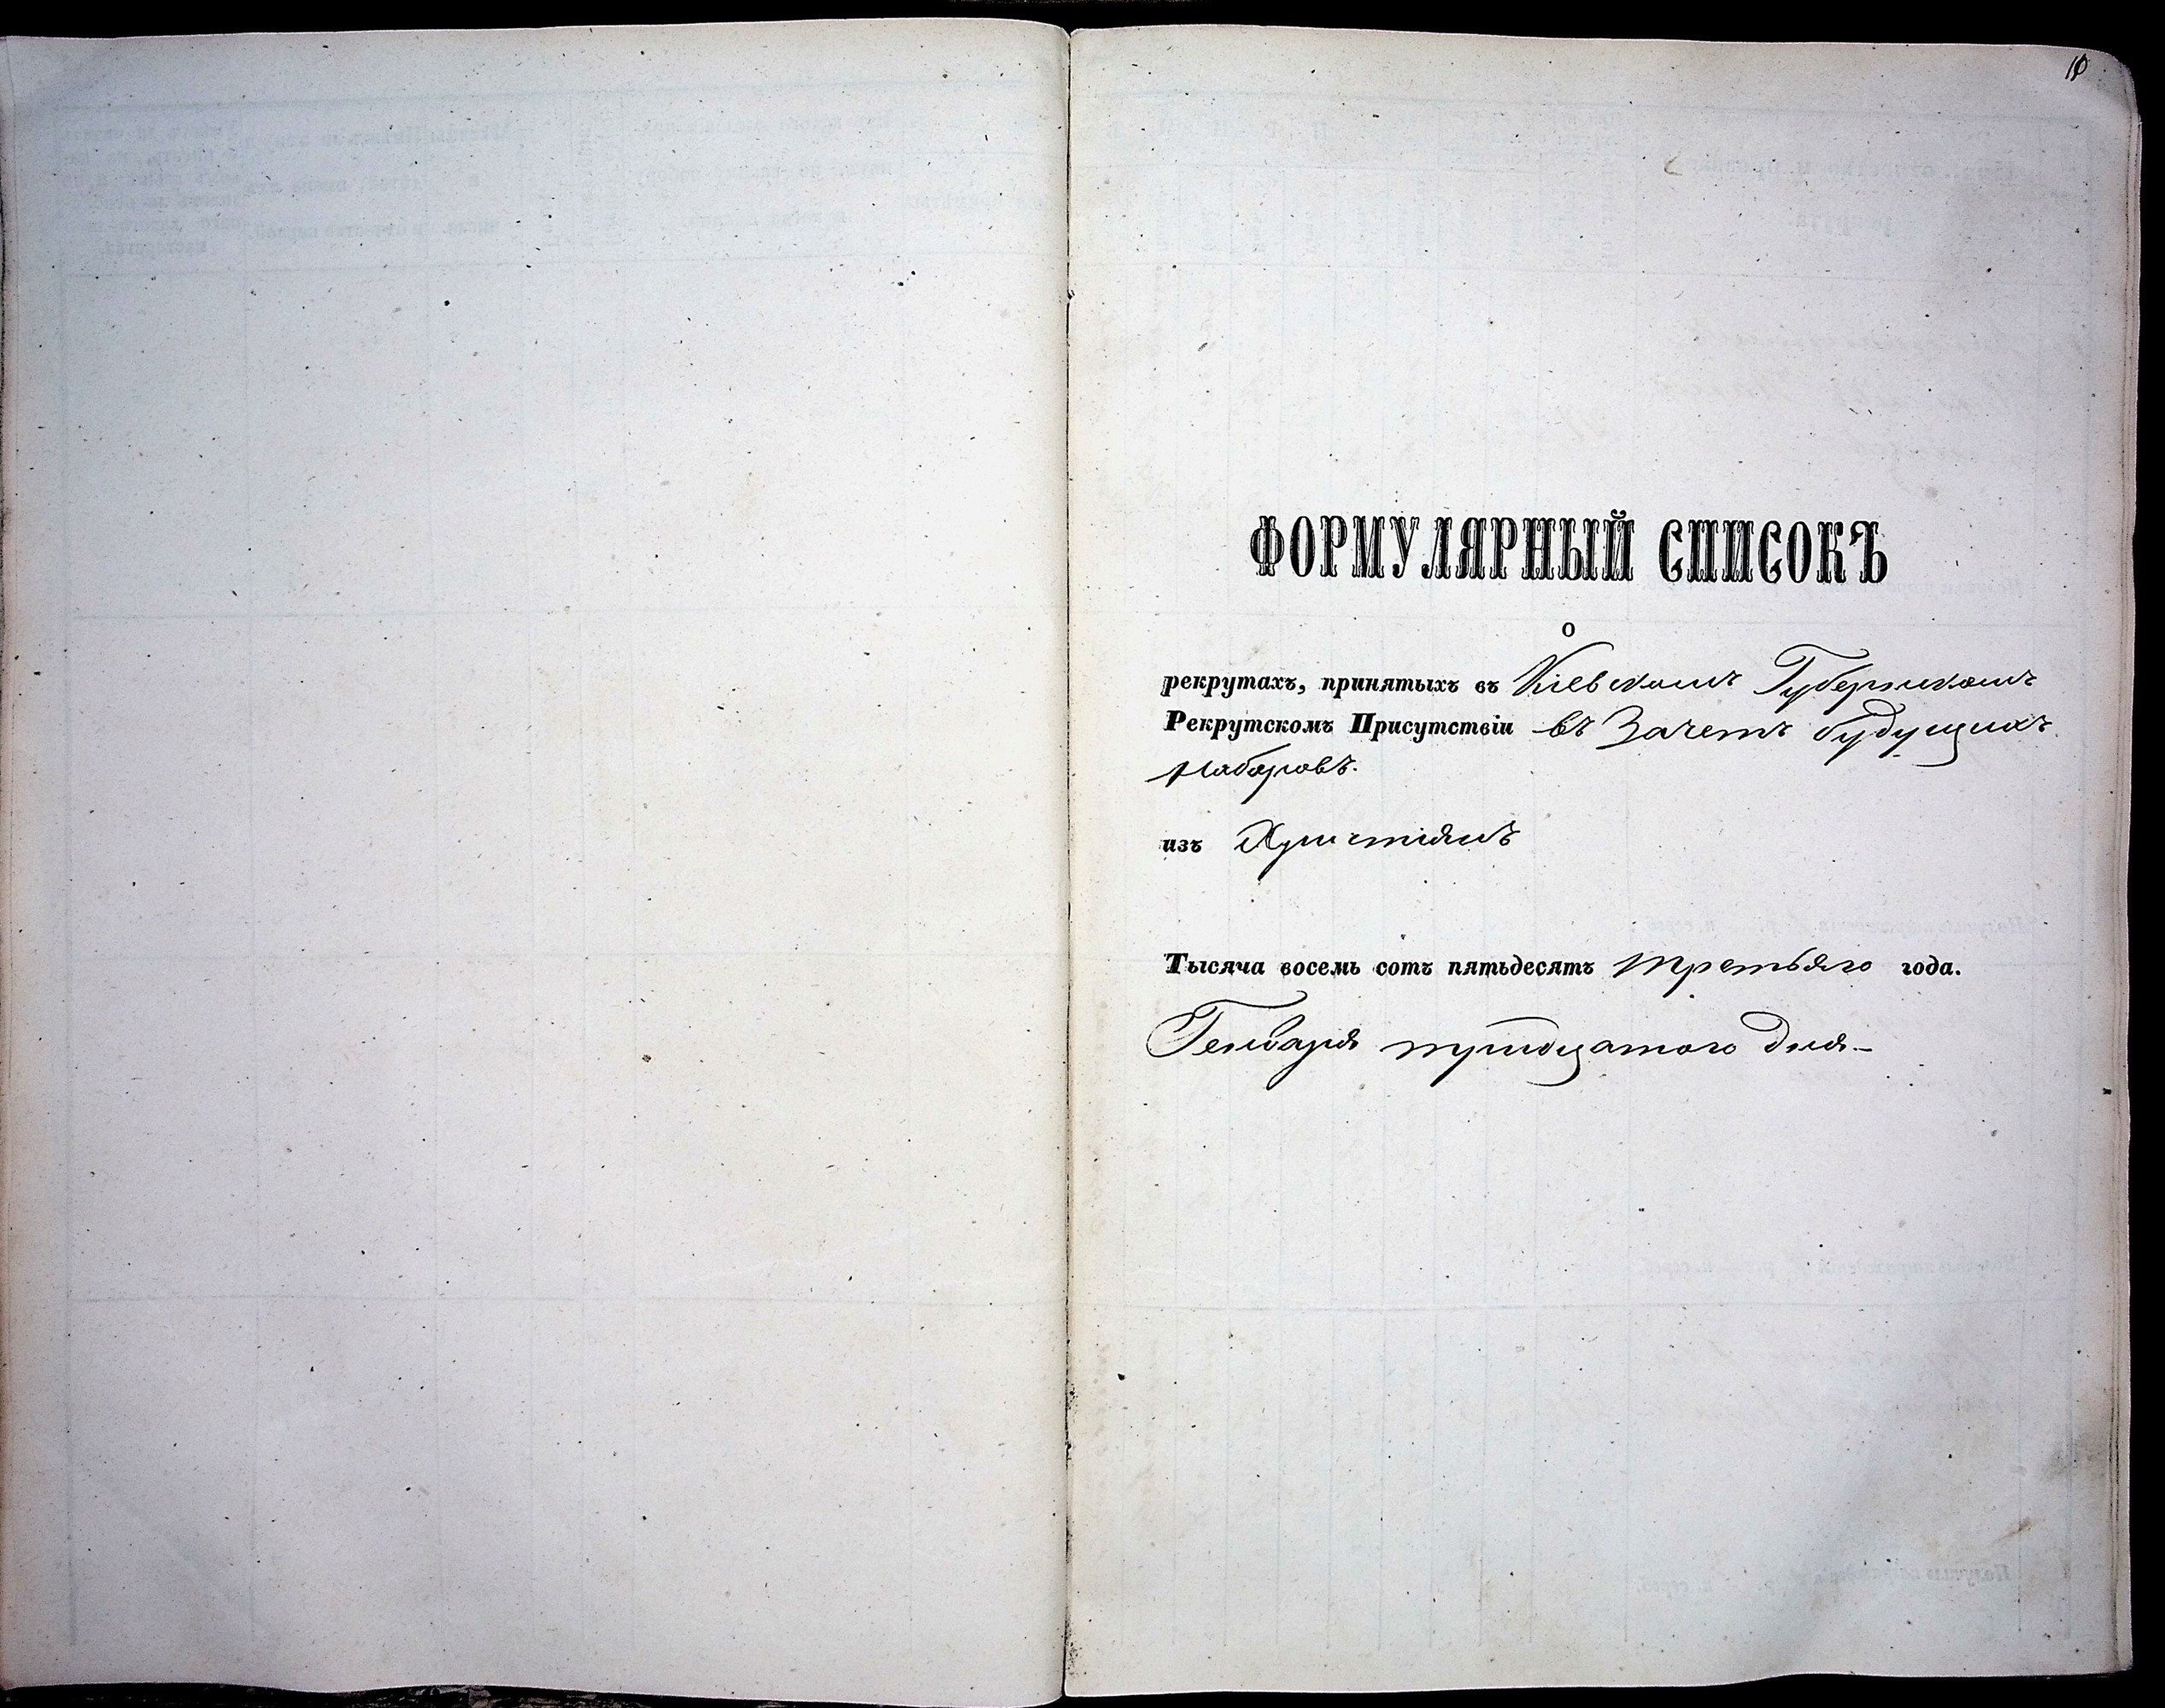 10
ФОРМУЛЯРНЫЙ СПИСОКЪ
о
рекрутахъ, принятыхъ въ Кіевскомъ Губернскомъ
Рекрутскомъ Присутствіи въ Зачетъ будущихъ
Наборовъ.
изъ Христіянъ
Тысяча восемь сотъ пятьдесятъ третьяго года.
Генваря тридцатого дня-